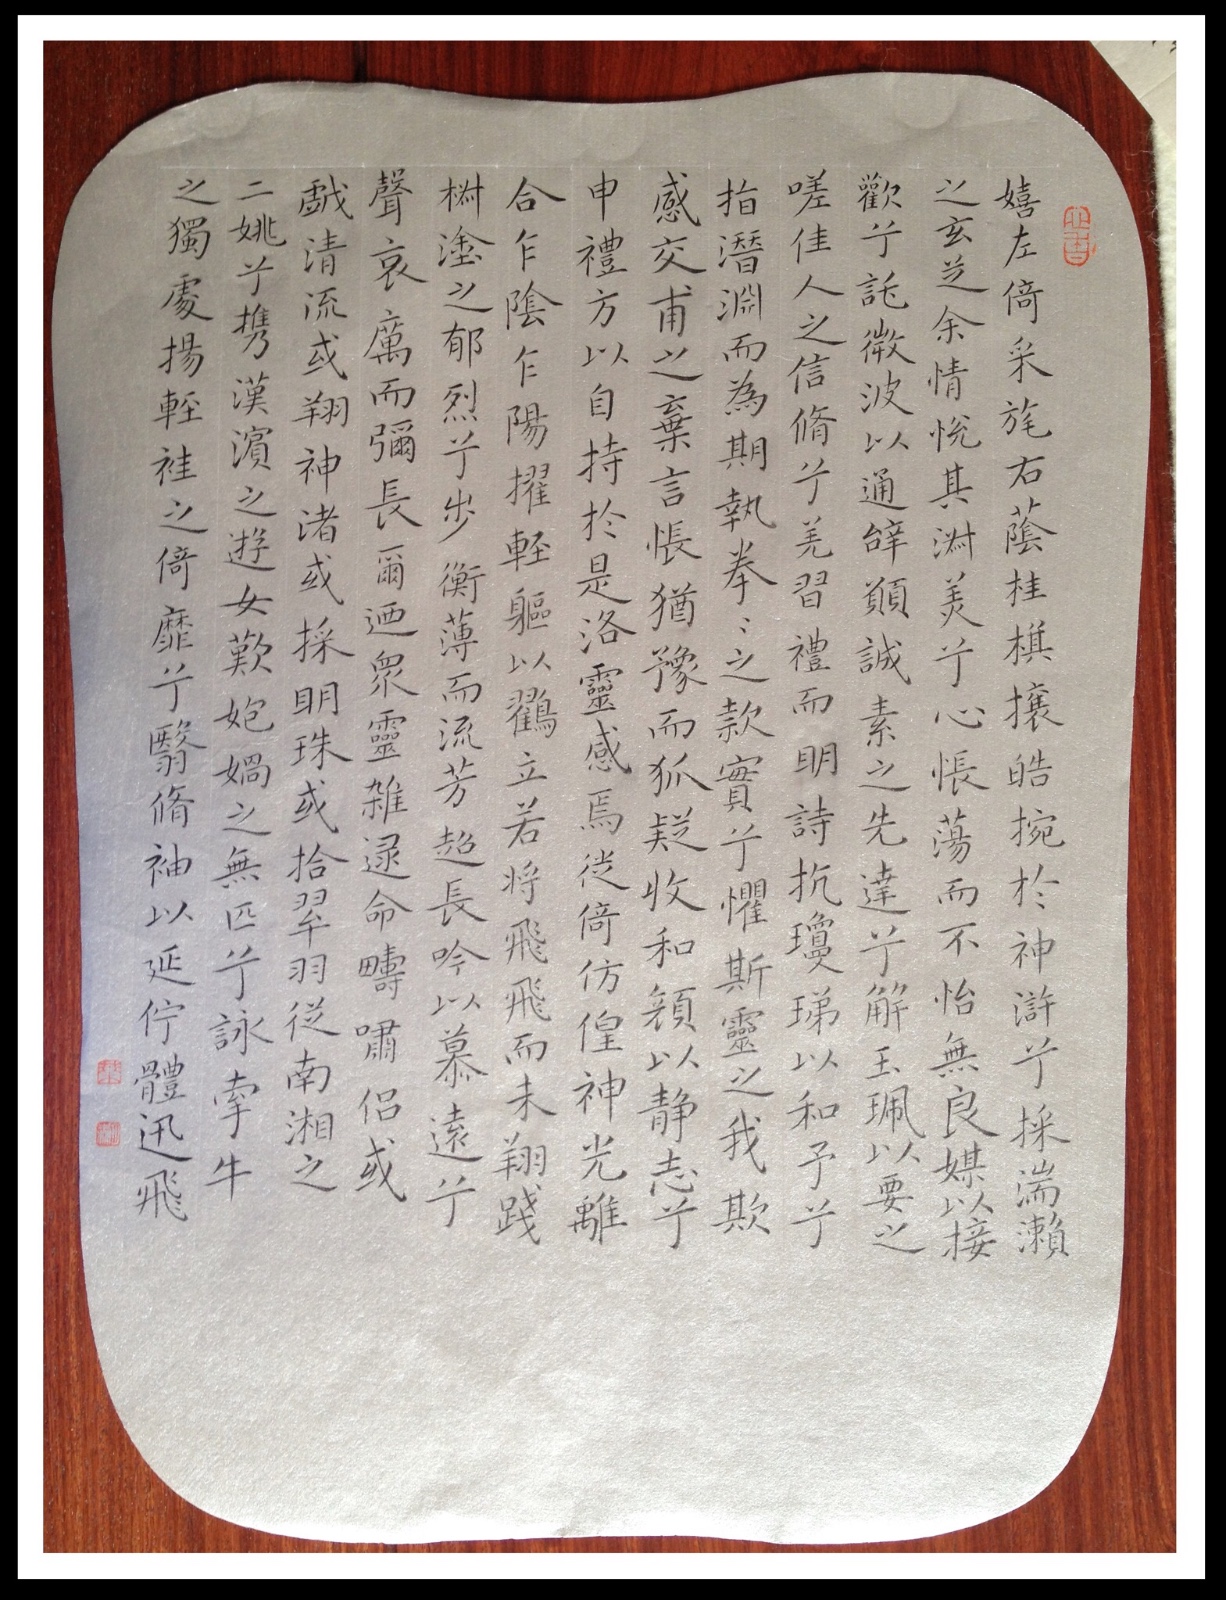 嬉左倚采旄右蔭桂棋攘皓捥於神滸兮採湍瀨
之玄芝余情悅其淑美兮心悵蕩而不怡無良媒以接
歡兮託微波以通辭願誠素之先達兮解玉珮以要之
嗟佳人之信脩兮羌習禮而明詩抗瓊珶以和予兮
指潛淵而為期執拳〻之款實兮懼斯靈之我欺
感交甫之棄言悵猶豫而狐疑收和顏以靜志兮
申禮方以自持於是洛靈感焉徙倚仿偟神光離
合乍陰乍陽擢輕軀以鸖立若將飛飛而未翔踐
樹塗之郁烈兮步衡薄而流芳超長吟以慕遠兮
聲哀厲而彌長爾迺眾靈雜逯命疇嘯侶或
戲清流或翔神渚或採明珠或拾翠羽從南湘之
二姚兮攜漢濱之遊女歎匏媧之無匹兮詠牽牛
之獨處揚輕袿之倚靡兮翳脩袖以延佇體迅飛